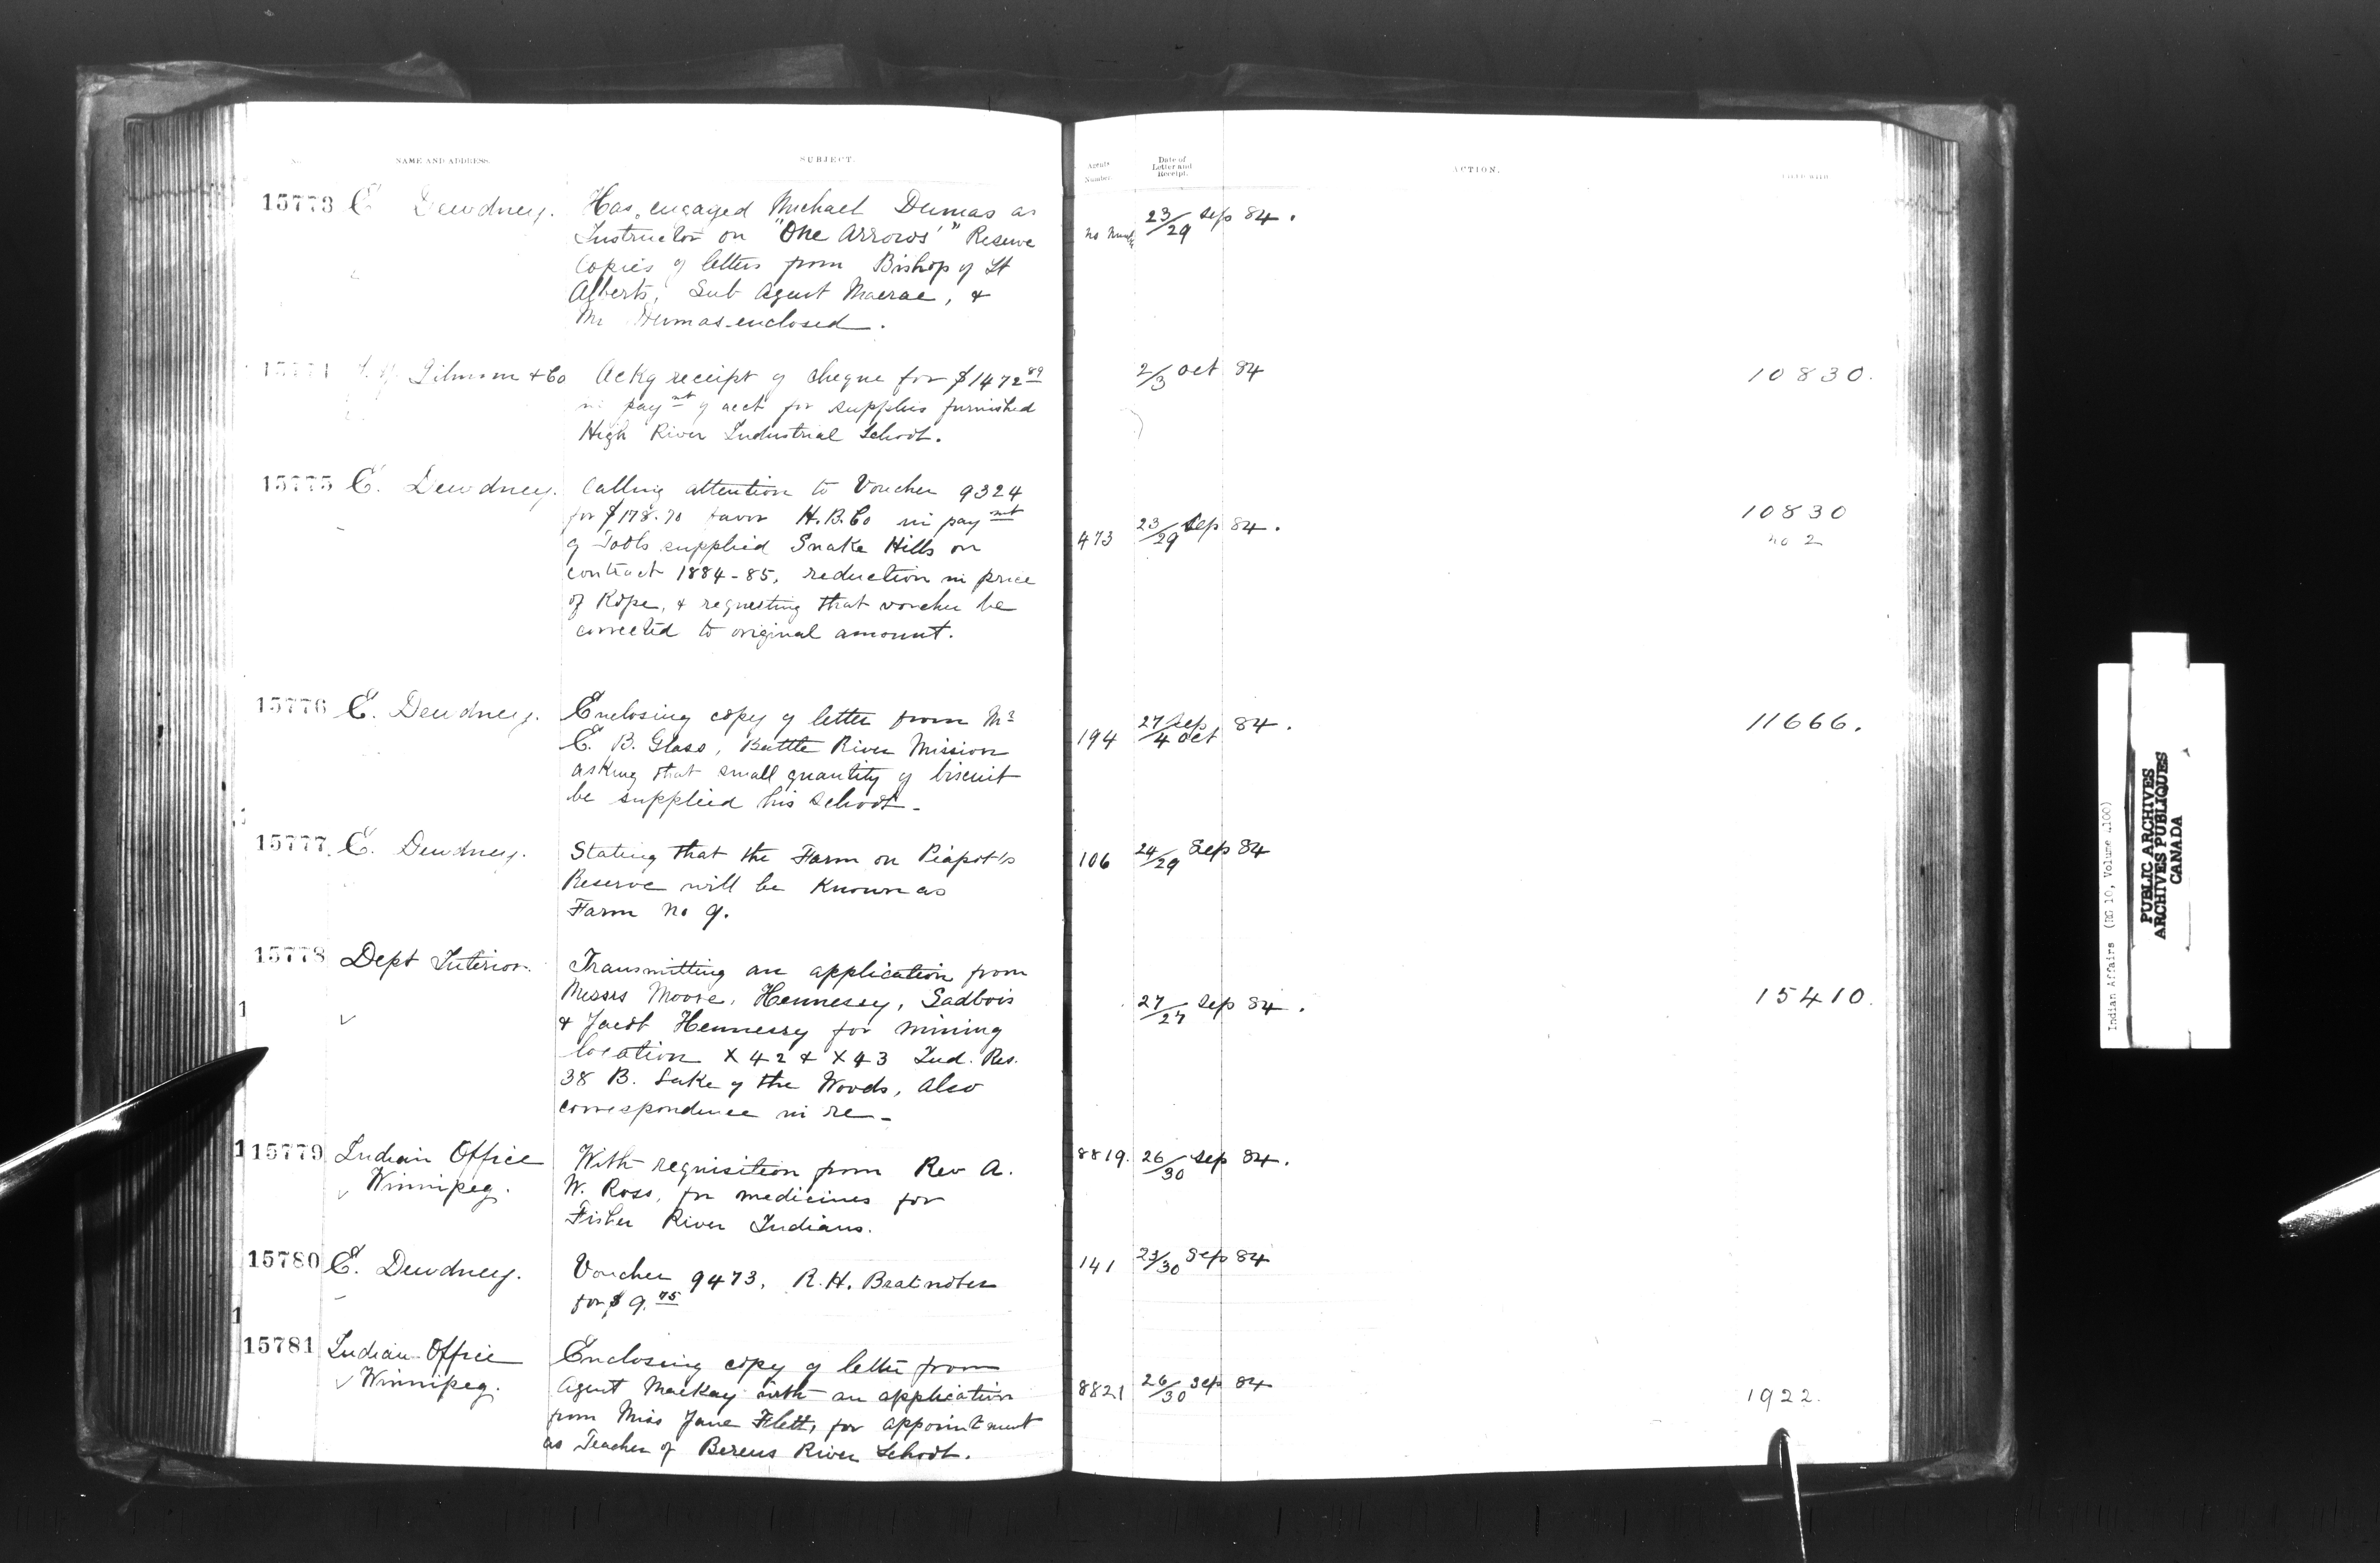 NAME AND ADDRESS.
SUBJECT.
Agents Number.
Date of Letter and Receipt.
ACTION.
FILED WITH
15773 E Dewdney. Has engaged Michael Dumas as
Instructor on "One Arrows'" Reserve
Copies of letters from Bishop of St
Alberts, Sub Agent Macrae, &
Mr Dumas enclosed.
no Number 23/29 Sep 84.
15774 Gilmour & Co Ackg receipt of cheque for $1472 89
in paymt of acct for supplies furnished
High River Industrial School.
2/3 Oct 84
10830.
15775 E. Dewdney. Calling attention to Voucher 9324
for $178.70 favor H.B.Co in paymt
of Tools supplied Snake Hills on
contract 1884-85, reduction in price
of Rope, & requesting that voucher be
corrected to original amount.
473 23/29 Sep 84.
10830
no 2
15776 E. Dewdney. Enclosing copy of letter from Mr
E. B. Glass, Battle River Mission
asking that small quantity of biscuit
be supplied his school-
194 27 Sep/4 Oct 84.
11666.
15777 E. Dewdney. Stating that the Farm on Piapot's
Reserve will be known as
Farm No 9.
106 24/29 Sep 84
15778 Dept Interior. Transmitting an application from
Messrs Moore, Hennessy, Sadbois
& Jacob Hennessy for mining
location X 42 & X 43 Ind. Res.
38 B. Lake of the Woods, also
correspondence in re-
27/27 Sep 84.
15410.
15779 Indian Office
Winnipeg.
With requisition from Rev A.
W. Ross, for medicines for
Fisher River Indians.
8819. 26/30 Sep 84.
15780 E. Dewdney. Voucher 9473, R.H. Bratnober
for $9.75
141 23/30 Sep 84
15781 Indian Office
Winnipeg.
Enclosing copy of letter from
Agent Mackay with an application
from Miss Jane Flett, for appointment
as Teacher of Berens River School.
8821 26/30 Sep 84
1922.
Indian Affairs (RG 10, Volume 4100)
PUBLIC ARCHIVES
ARCHIVES PUBLIQUES
CANADA